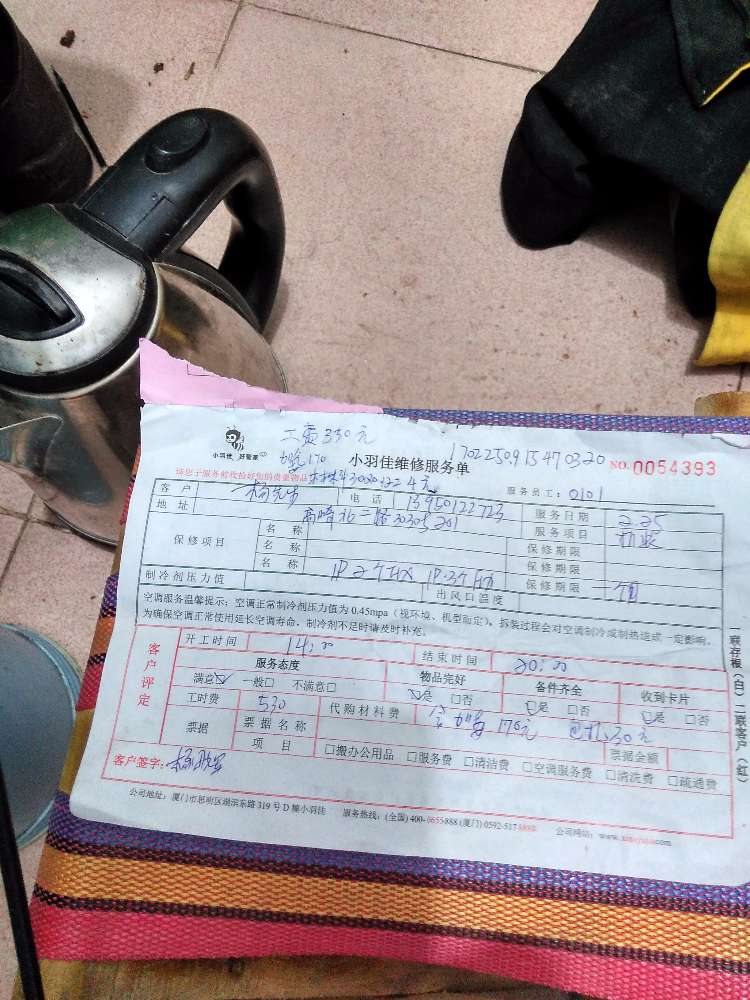 二页330元
小羽佳 好管家
加氟170
小羽佳维修服务单
1702250915470320
NO.0054393
4元
服务员工:0101
客户 杨先生 电话 13950122723 服务日期 2.25
地址 高崎北二路 201 服务项目
保修项目 名称 保修期限
名称 保修期限
名称 保修期限
制冷剂压力值 出风口温度
空调服务温馨提示:空调正常制冷剂压力值为0.45mpa(视环境、机型而定),拆装过程会对空调制冷或制热造成一定影响,
为确保空调正常使用延长空调寿命,制冷剂不足时请及时补充。
客户评定
开工时间 14:00 结束时间 20:00
服务态度 物品完好 备件齐全 收到卡片
满意☑ 一般□ 不满意□ ☑是 □否 ☑是 □否 ☑是 □否
工时费 530 代购材料费 170元 30元
票据 票据名称 票据金额
项目 □搬办公用品 □服务费 □清洁费 □空调服务费 □清洗费 □疏通费
客户签字:
公司地址:厦门市思明区湖滨东路319号D幢小羽佳 服务热线:(全国)400-6655888(厦门)0592-5178888 公司网站:
一联存根(白)二联客户(红)